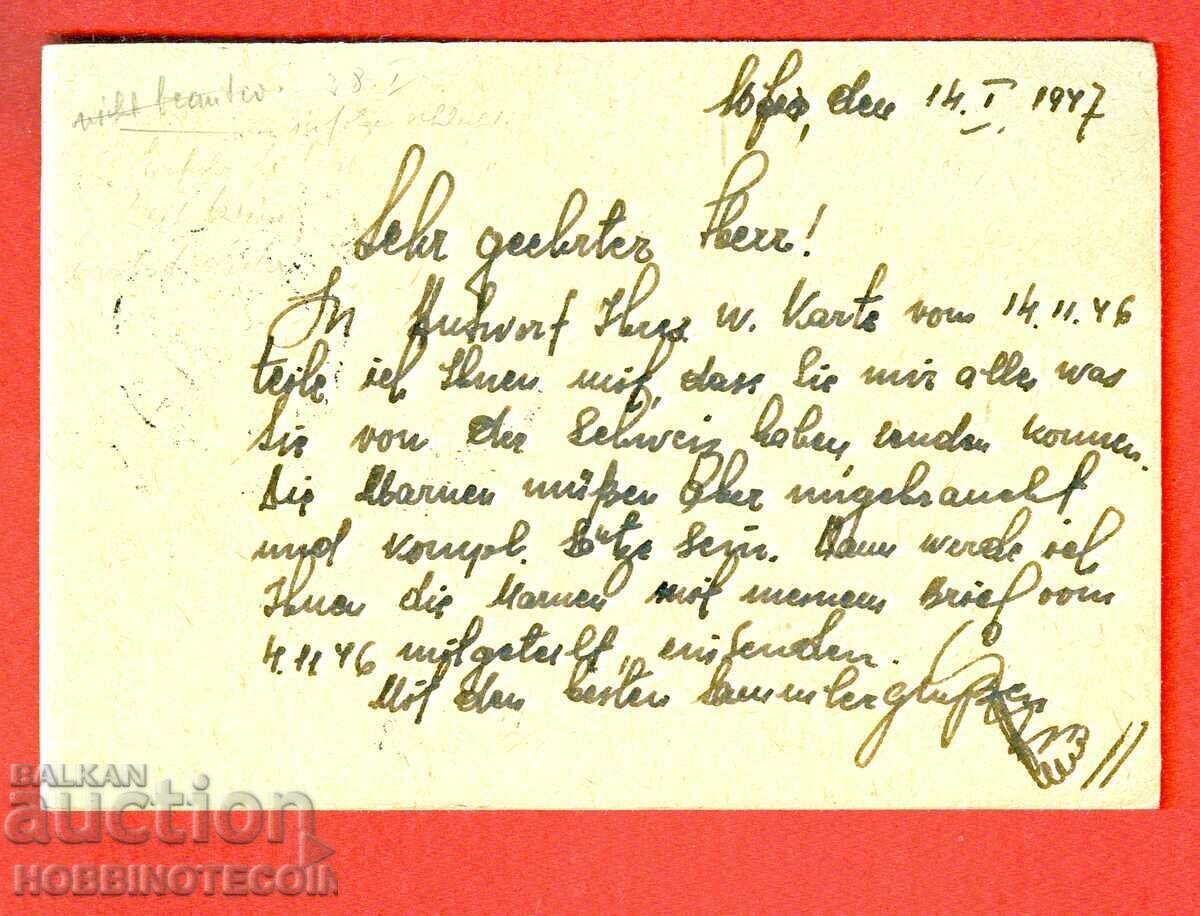 nicht beantw. 28.I
Sofia, den 14.I.1947
Sehr geehrter Herr!
In Antwort Ihrer w. Karte vom 14.11.46
teile ich Ihnen mit, dass Sie mir alles was
Sie von der Schweiz haben, senden konnen.
Die Marken müßen aber ungebraucht
und kompl. Sätze sein. Dann werde ich
Ihnen die Marken mit meinem Brief vom
4.11.46 mitgeteilt, einsenden.
Mit den besten Sammlergrüßen
BALKAN
auction
HOBBINOTECOIN